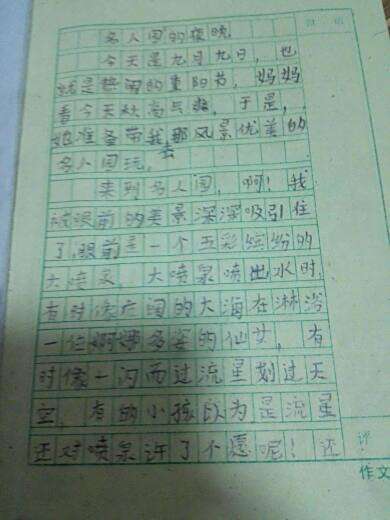 名人园的夜晚
今天是九月九日,也
就是热闹的重阳节,妈妈
看今天秋高气爽,于是,
她准备带我去那风景优美的
名人园玩。
来到名人园,啊!我
被眼前的美景深深吸引住
了,眼前是一个五彩缤纷的
大喷泉。大喷泉喷出水时,
有时像宽阔的大海在淋浴
一位婀娜多姿的仙女,有
时像一闪而过流星划过天
空,有的小孩以为是流星
还对喷泉许了个愿呢!还
评
作文